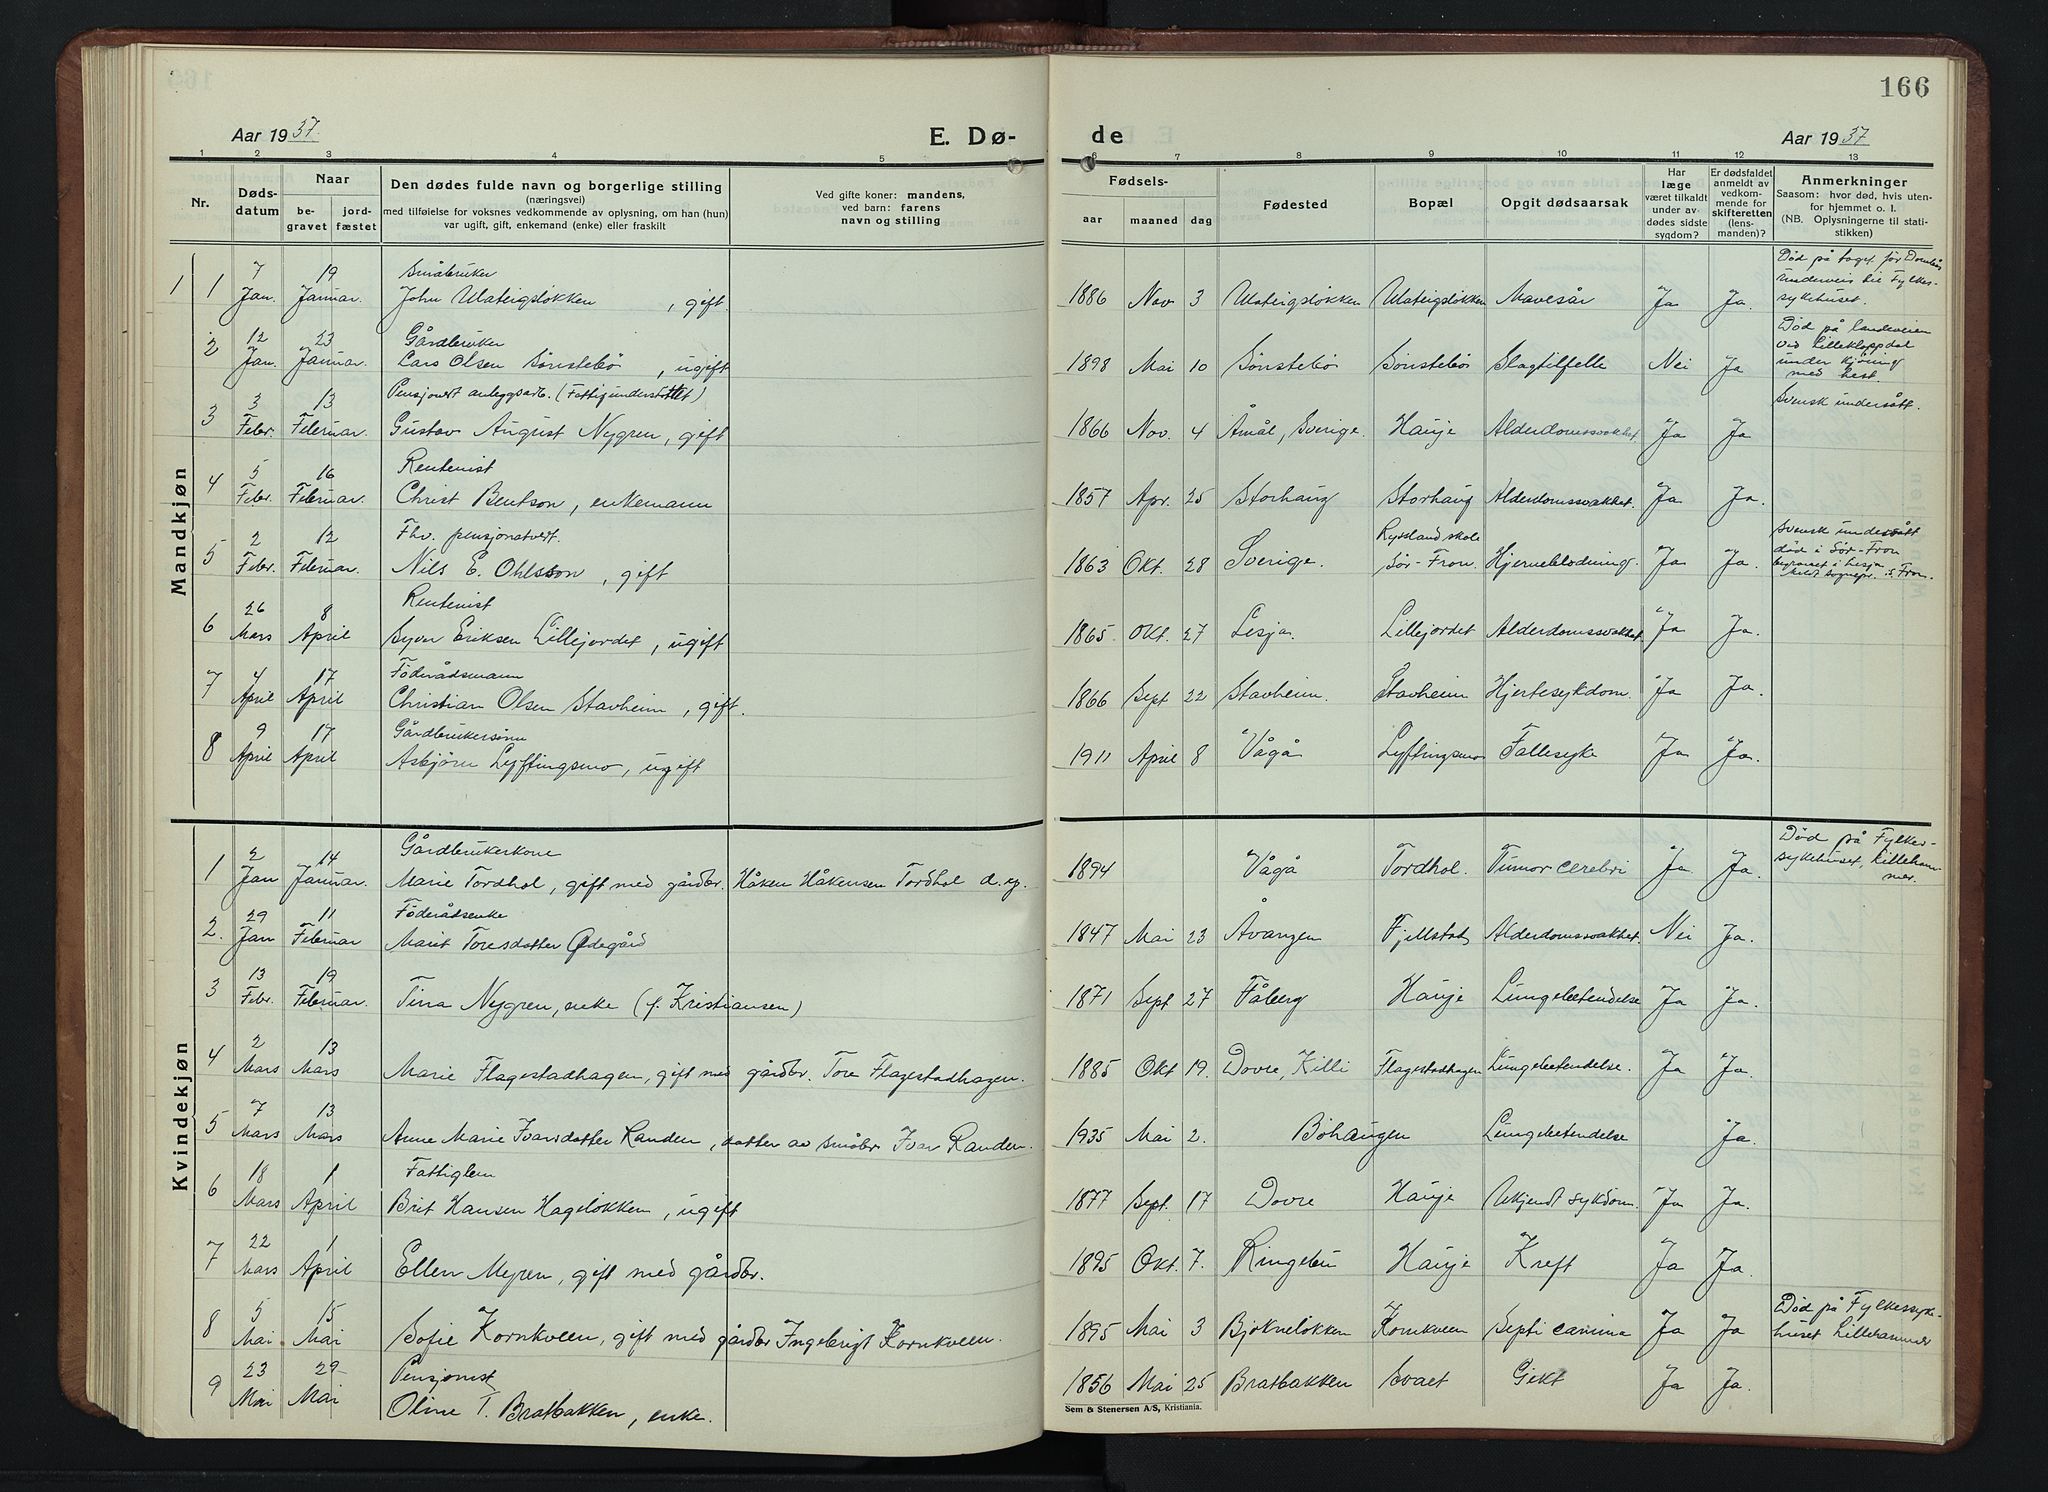 166
Aar 1937
E. Dø-
de
Aar 1937
1 2 3 4 5 6 7 8 9 10 11 12 13
Nr.
Døds-
datum
Naar
be-
gravet
jord-
fæstet
Den dødes fulde navn og borgerlige stilling
(næringsvei)
med tilføielse for voksnes vedkommende av oplysning, om han (hun)
var ugift, gift, enkemand (enke) eller fraskilt
Ved gifte koner: mandens,
ved barn: farens
navn og stilling
Fødsels-
aar maaned dag
Fødested
Bopæl
Opgit dødsaarsak
Har
læge
været tilkaldt
under av-
dødes sidste
sygdom?
Er dødsfaldet
anmeldt av
vedkom-
mende for
skifteretten
(lens-
manden)?
Anmerkninger
Saasom: hvor død, hvis uten-
for hjemmet o. l.
(NB. Oplysningerne til stati-
stikken)
Mandkjøn
1 1 7 Jan. 19 Januar. Småbruker
John Ulateigsløkken, gift. 1886 Nov 3 Ulateigsløkken Ulateigsløkken Mavesår Ja Ja.
Død på toget før Dombås
underveis til Fylkes-
sykehuset.
2 12 Jan. 23 Januar. Gårdbruker
Lars Olsen Sønstebø, ugift 1898 Mai 10 Sønstebø Sønstebø Slagtilfelle Nei Ja
Død på landeveien
ved Lillekloppdal
under kjøring
med hest.
3 3 Febr. 13 Februar. Pensjonert anleggsarb. (Fattigunderstøttet)
Gustav August Nygren, gift 1866 Nov. 4 Åmål, Sverige. Hauje Alderdomssvakhet Ja Ja
Svensk undersått.
4 5 Febr. 16 Februar. Rentenist
Christ Bentson, enkemann 1857 Apr. 25 Storhaug Storhaug Alderdomssvakhet. Ja Ja.
5 2 Febr. 12 Februar. Fhv. pensjonatvert.
Nils E. Ohlsson, gift 1863 Okt. 28 Sverige. Ryssland skole
Sør-Fron Hjerneblødning. Ja Ja.
Svensk undersått
død i Sør-Fron
begravet i Lesja
S. Fron.
6 26 Mars 8 April Rentenist
Syver Eriksen Lillejordet, ugift 1865. Okt. 27 Lesja. Lillejordet Alderdomssvakhet Ja Ja.
7 4 April 17 April Føderådsmann
Christian Olsen Stavheim, gift. 1866 Sept 22 Stavheim. Stavheim Hjertesykdom. Ja Ja.
8 9 April 17 April Gårdbrukersønn
Asbjørn Lyftingsmo, ugift 1911 April 8 Vågå Lyftingsmo Fallesyke Ja Ja.
Kvindekjøn
1 2 Jan 14 Januar. Gårdbrukerkone
Marie Tordhol, gift med gårdbr. Håken Håkensen Tordhol d. y. 1894 Vågå Tordhol. Tumor cerebri Ja Ja.
Død på Fylkes-
sykehuset, Lilleham-
mer.
2. 29 Jan 11 Februar Føderådsenke
Marit Toresdatter Ødegård 1847 Mai 23 Åvangen Fjellstad Alderdomssvakhet. Nei Ja.
3 13 Febr. 19 Februar. Tina Nygren, enke (f. Kristiansen) 1871 Sept 27 Fåberg Hauje Lungebetendelse Ja Ja.
4 2 Mars 13 Mars Marie Flagestadhagen, gift med gårdbr. Tore Flagestadhagen. 1885 Okt 19. Dovre, Killi Flagestadhagen Lungebetendelse. Ja Ja.
5 7 Mars 13 Mars Anne Marie Ivarsdatter Randen, datter av småbr. Ivar Randen. 1935 Mai 2. Bøhaugen Lungebetendelse Ja.
6 18 Mars 1 April Fattiglem
Brit Hansen Hageløkken, ugift 1877 Sept. 17 Dovre Hauje Ukjendt sykdom. Ja Ja.
7 22 Mars 1 April Ellen Myren, gift med gårdbr. 1895 Okt. 7. Ringebu Hauje Kreft Ja Ja.
8 5 Mai 15 Mai Sofie Kornkveen, gift med gårdbr Ingebrigt Kornkveen. 1895 Mai 3 Bjøkneløkken Kornkveen Ja Ja
Død på Fylkessyke-
huset Lillehammer
9 23 Mai 29 Mai Pensjonist
Oline T. Bratbakken, enke. 1856 Mai 25 Bratbakken Svaet Gikt Ja Ja.
Sem & Stenersen A/S, Kristiania.